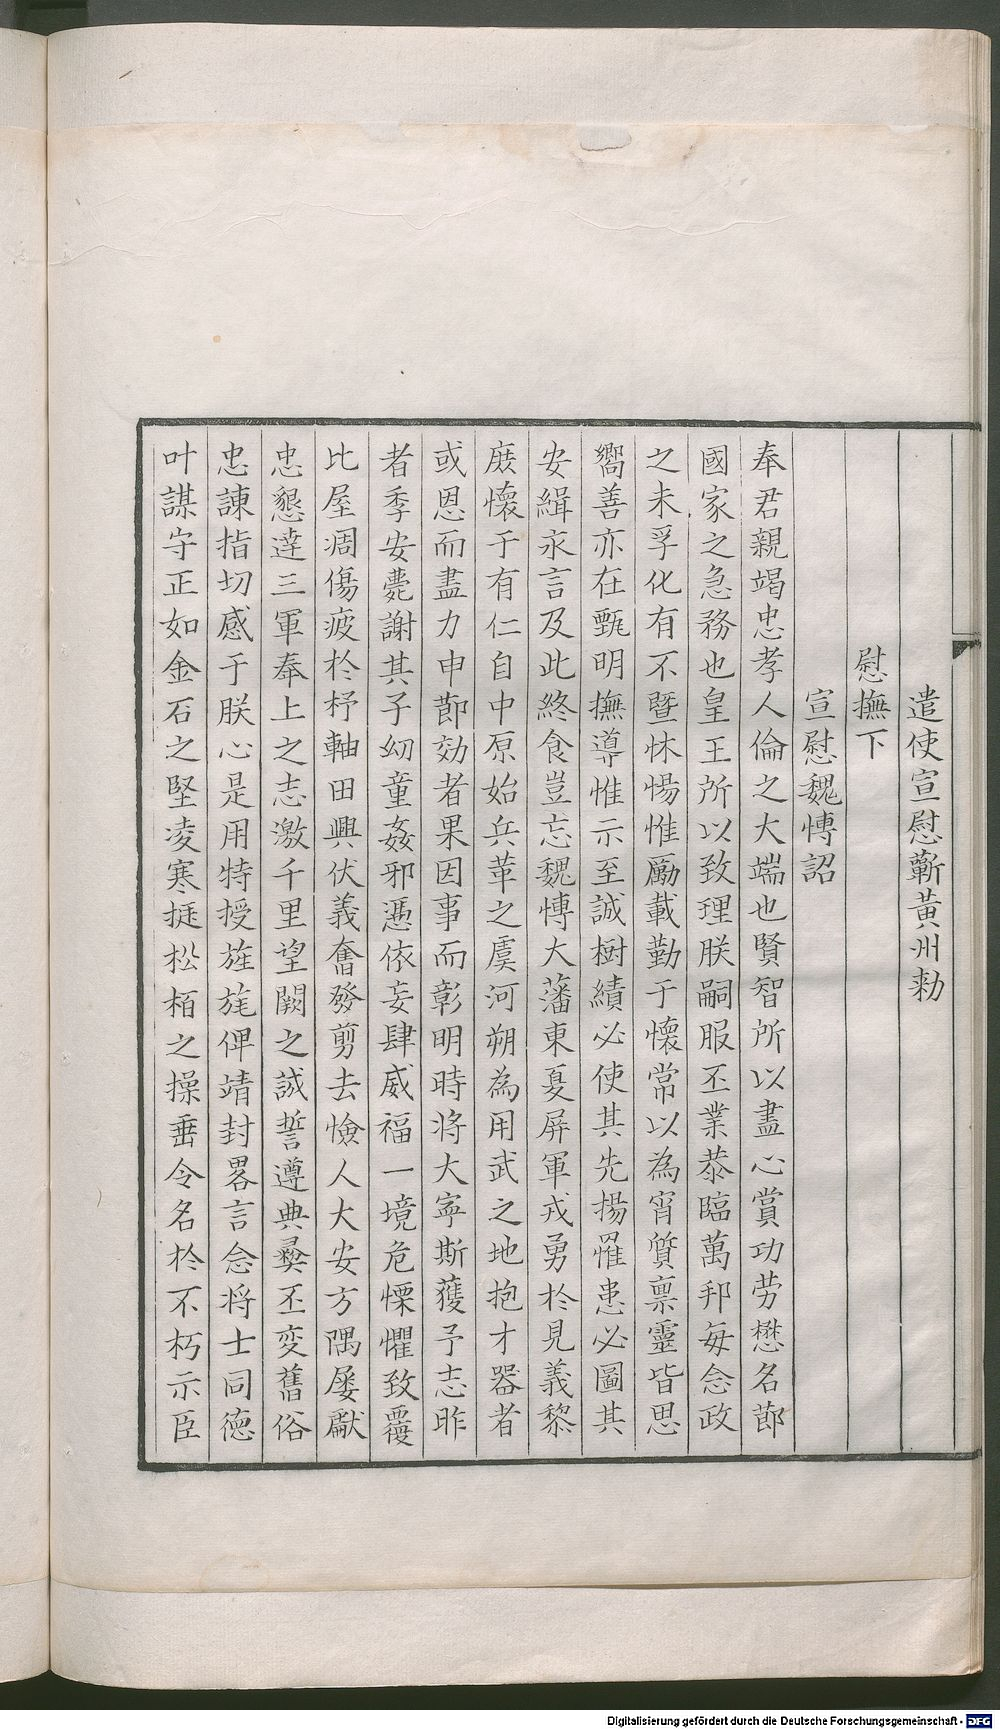 遣使宣慰蘄黃州勑
慰撫下
宣慰魏愽詔
奉君親竭忠孝人倫之大端也賢智所以盡心賞功劳懋名莭
國家之急務也皇王所以致理朕嗣服丕業恭臨萬邦每念政
之未孚化有不暨怵惕惟厲載勤于懷常以為宵質禀靈皆思
嚮善亦在甄明撫導惟示至誠樹績必使其先揚罹患必圖其
安緝永言及此終食豈忘魏愽大藩東夏屏軍戎勇於見義黎
庶懷于有仁自中原始兵革之虞河朔為用武之地抱才器者
或恩而盡力申莭効者果因事而彰明時将大寧斯獲予志昨
者季安薨謝其子幼童姦邪憑依妄肆威福一境危慄懼致覆
比屋凋傷疲於杼軸田興伏義奮發剪去憸人大安方隅屡献
忠懇達三軍奉上之志激千里望闕之誠誓遵典彝丕变舊俗
忠諫指切感于朕心是用特授旌旄俾靖封畧言念将士同徳
叶謀守正如金石之堅凌寒挺松栢之操垂令名於不朽示臣
Digitalisierung gefördert durch die Deutsche Forschungsgemeinschaft - DFG